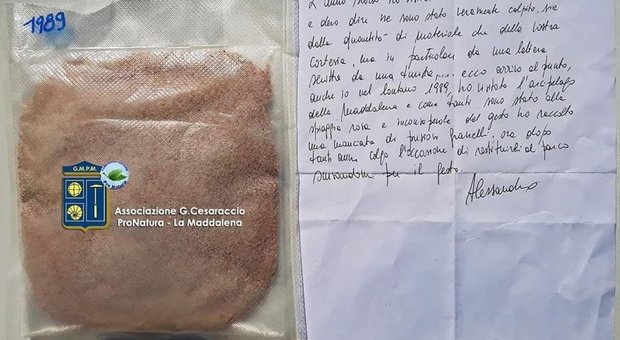 1989
G.M.P.M.
Pro Natura
Associazione G.Cesaraccio
ProNatura - La Maddalena
e devo dire
ne sono stato veramente colpito, sia
dalla quantità di materiale che dalla vostra
cortesia, ma in particolare da una lettera
scritta da una turista, ecco arrivo al punto,
anch'io nel lontano 1989, ho visitato l'arcipelago
della Maddalena e come tanti sono stato alla
spiaggia rosa e inconsapevole del gesto ho raccolto
una manciata di preziosi granelli, ora dopo
tanti anni colgo l'occasione di restituirli al parco
scusandomi per il gesto.
Alessandro